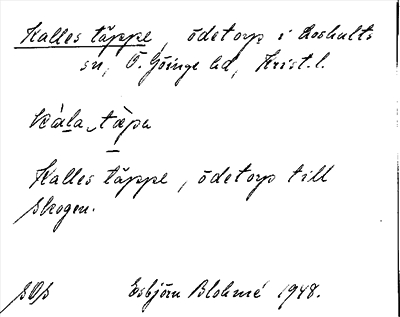 Kalles täppe, ödetorp i Loshults
sn, Ö. Göinge hd, Krist. l.
kàla täpa
Kalles täppe, ödetorp till
skogen.
Esbjörn Blohmé 1948.